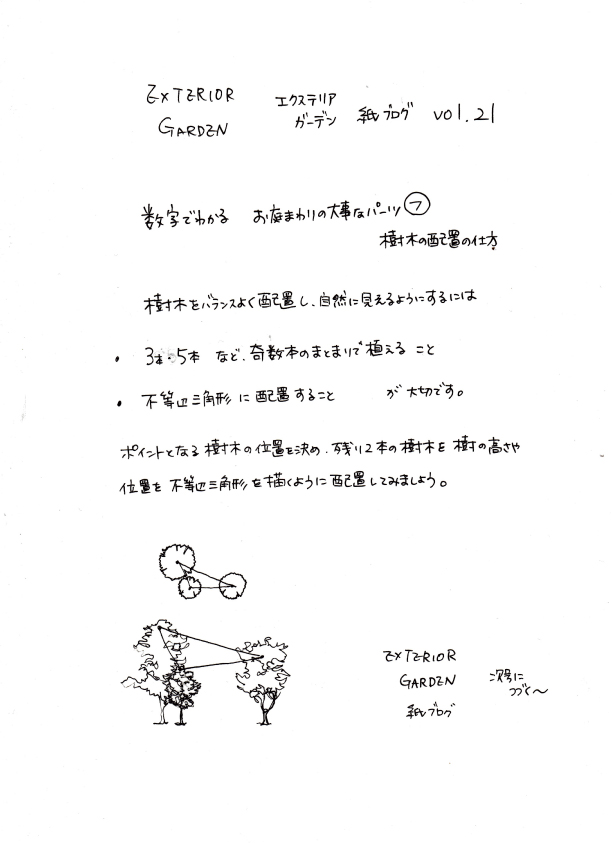 EXTERIOR
GARDEN
エクステリア
ガーデン
紙ブログ vol.21
数字でわかる お庭まわりの大事なパーツ⑦
樹木の配置の仕方
樹木をバランスよく配置し、自然に見えるようにするには
・ 3本・5本 など、奇数本のまとまりで植える こと
・ 不等辺三角形 に 配置すること が 大切です。
ポイントとなる 樹木の位置を決め、残り2本の樹木を 樹の高さや
位置を 不等辺三角形を描くように配置してみましょう。
EXTERIOR
GARDEN
紙ブログ
次号に
つづく～